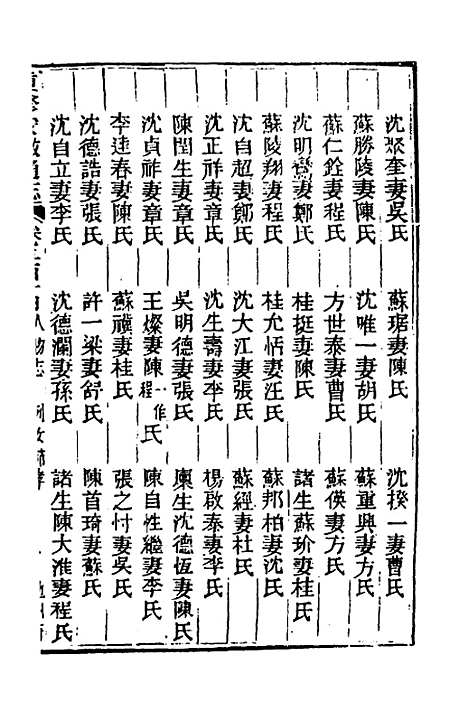 沈聚奎妻吳氏　蘇琚妻陳氏　沈揆一妻曹氏
蘇勝陵妻陳氏　沈唯一妻胡氏　蘇重興妻方氏
蘇仁銓妻程氏　方世泰妻曹氏　蘇偀妻方氏
沈明鸞妻鄭氏　桂挺妻陳氏　諸生蘇玠妻桂氏
蘇陵翔妻程氏　桂允恬妻汪氏　蘇邦柏妻沈氏
沈自超妻鄭氏　沈大江妻張氏　蘇經妻杜氏
沈正祥妻章氏　沈生壽妻李氏　楊啟泰妻李氏
陳閏生妻章氏　吳明德妻張氏　廩生沈德恆妻陳氏
沈貞祥妻章氏　王燦妻陳一作程氏　陳自性繼妻李氏
李逵春妻陳氏　蘇䄡妻桂氏　張之忖妻吳氏
沈德誥妻張氏　許一梁妻舒氏　陳首琦妻蘇氏
沈自立妻李氏　沈德瀾妻孫氏　諸生陳大淮妻程氏
重修安徽通志　人物志　列女